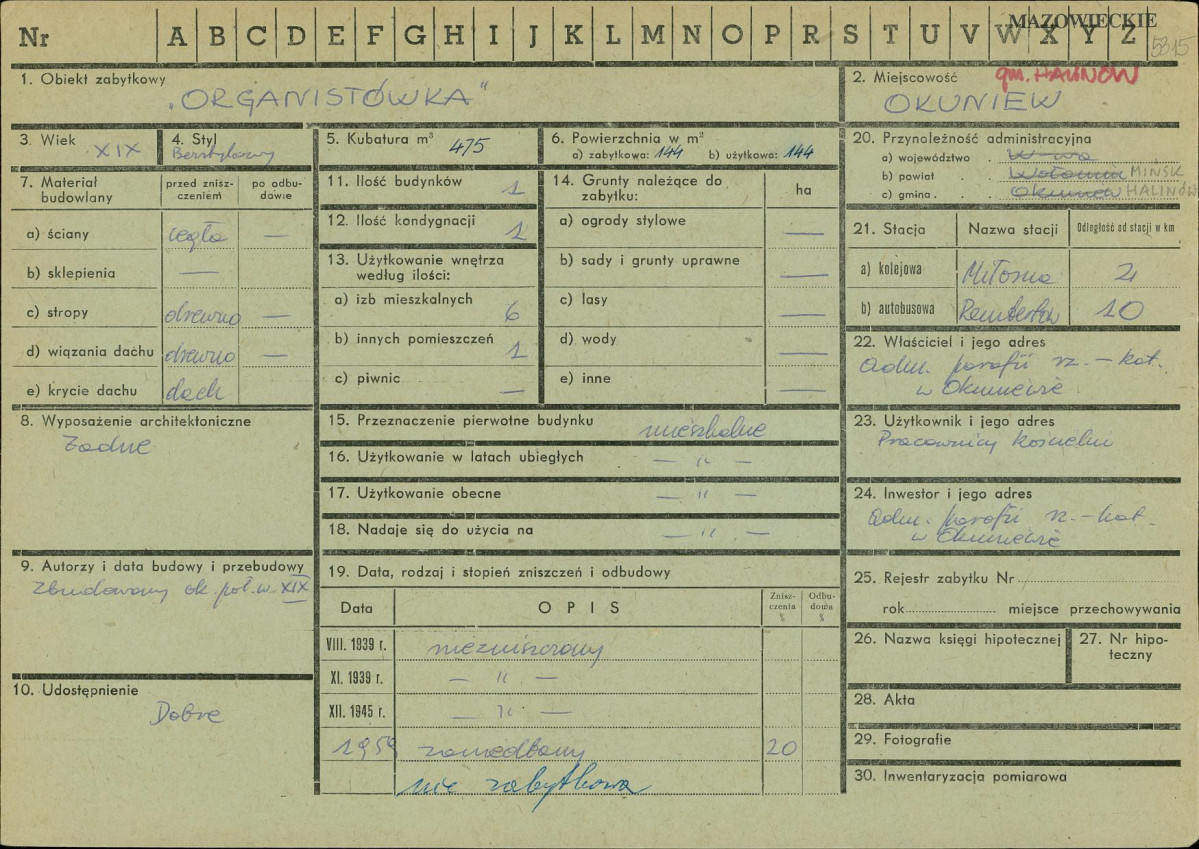 Nr A B C D E F G H I J K L M N O P R S T U V W X Y Z
MAZOWIECKIE
5315
1. Obiekt zabytkowy
„ORGANISTÓWKA"
2. Miejscowość
gm. HALINÓW
OKUNIEW
3. Wiek
XIX
4. Styl
Bezstylowy
5. Kubatura m³ 475
6. Powierzchnia w m²
a) zabytkowa: 144 b) użytkowa: 144
7. Materiał budowlany
przed zniszczeniem
po odbudowie
a) ściany cegła —
b) sklepienia —
c) stropy drewno —
d) wiązania dachu drewno —
e) krycie dachu dach
8. Wyposażenie architektoniczne
Żadne
9. Autorzy i data budowy i przebudowy
Zbudowany ok. poł. w. XIX
10. Udostępnienie
Dobre
11. Ilość budynków 1
12. Ilość kondygnacji 1
13. Użytkowanie wnętrza
według ilości:
a) izb mieszkalnych 6
b) innych pomieszczeń 1
c) piwnic —
14. Grunty należące do
zabytku: ha
a) ogrody stylowe —
b) sady i grunty uprawne —
c) lasy —
d) wody —
e) inne —
15. Przeznaczenie pierwotne budynku mieszkalne
16. Użytkowanie w latach ubiegłych — " —
17. Użytkowanie obecne — " —
18. Nadaje się do użycia na — " —
19. Data, rodzaj i stopień zniszczeń i odbudowy
Data OPIS Zniszczenia % Odbudowa %
VIII. 1939 r. niezniszczony
XI. 1939 r. — " —
XII. 1945 r. — " —
1959 zaniedbany 20
nie zabytkowa
20. Przynależność administracyjna
a) województwo . W-wa
b) powiat . . Wołomin MIŃSK
c) gmina . . . Okuniew HALINÓW
21. Stacja Nazwa stacji Odległość od stacji w km
a) kolejowa Miłosna 4
b) autobusowa Rembertów 10
22. Właściciel i jego adres
Adm. parafii rz. - kat.
w Okuniewie
23. Użytkownik i jego adres
Pracownicy kościelni
24. Inwestor i jego adres
Adm. parafii rz. - kat.
w Okuniewie
25. Rejestr zabytku Nr
rok miejsce przechowywania
26. Nazwa księgi hipotecznej
27. Nr hipoteczny
28. Akta
29. Fotografie
30. Inwentaryzacja pomiarowa